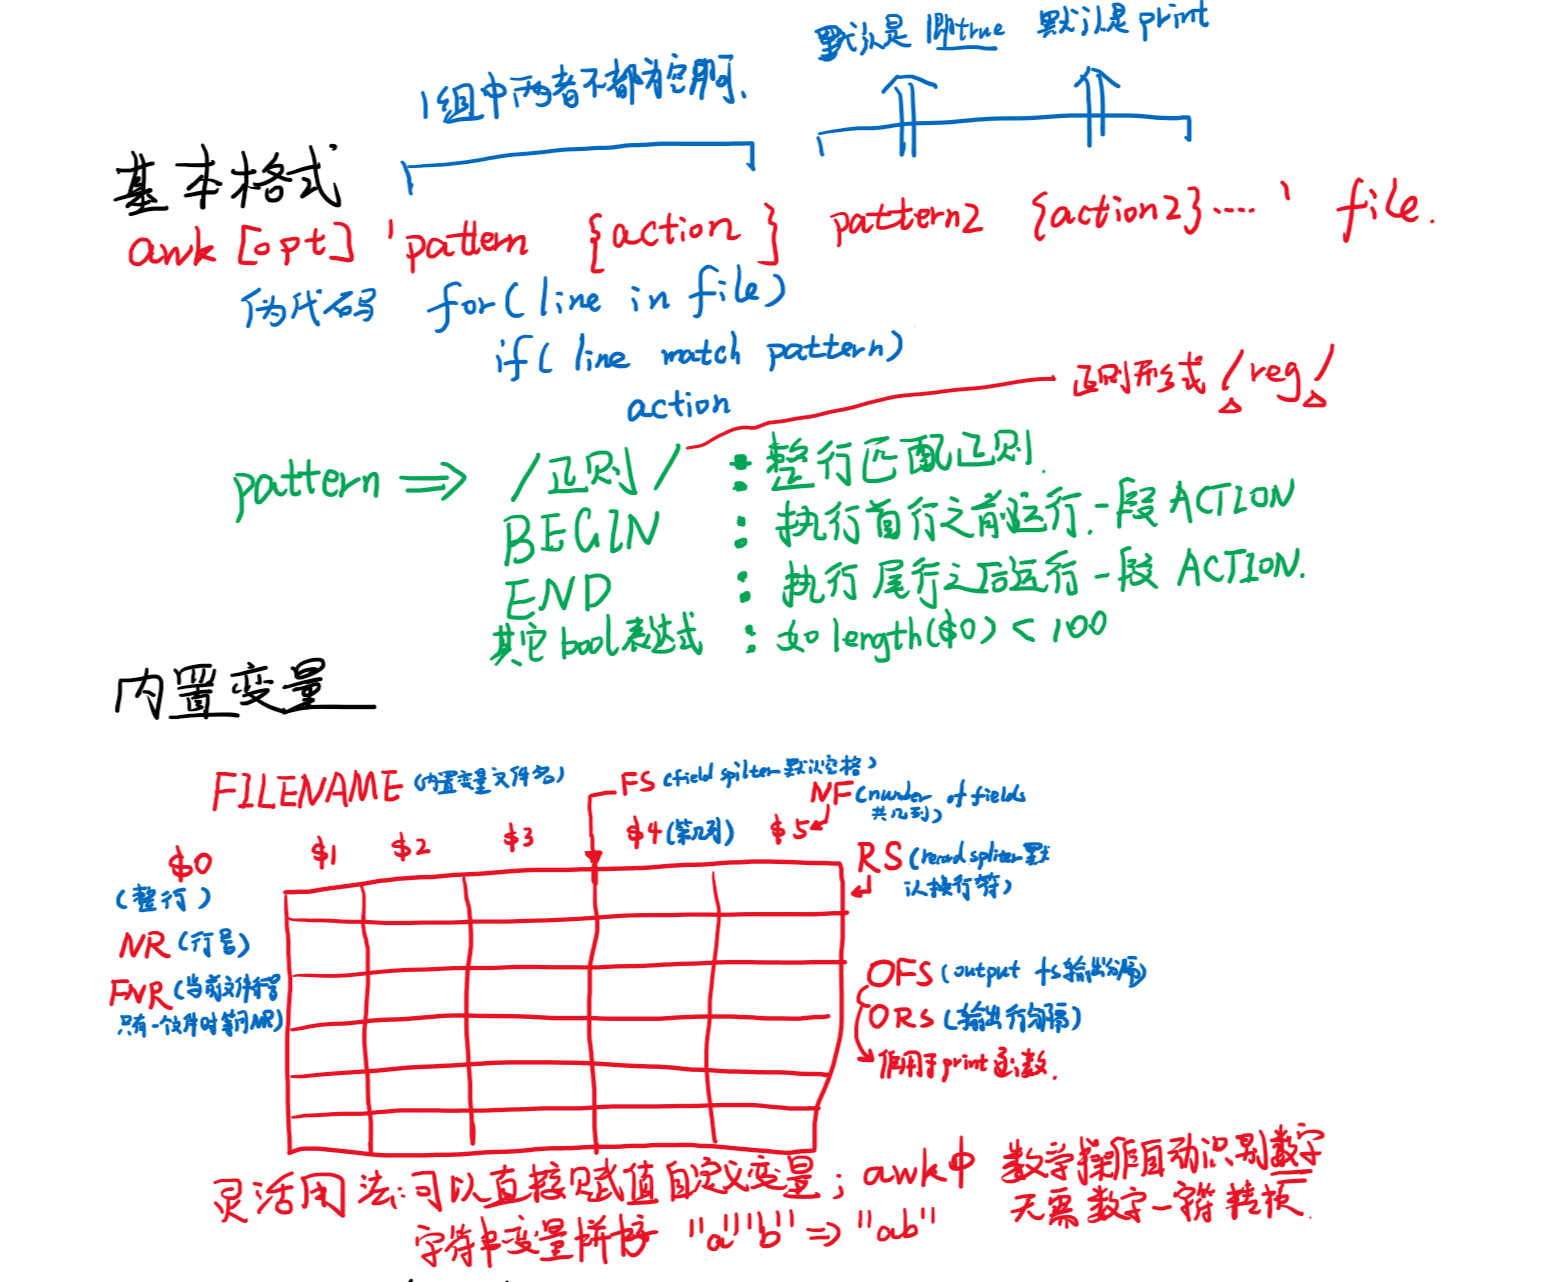 默认是1即true 默认是print
1组中两者不都为空即可.
基本格式
awk [opt] 'pattern {action} pattern2 {action2}....' file.
伪代码 for(line in file)
if(line match pattern)
action
正则形式 /reg/
pattern ⇒ /正则/ : 整行匹配正则.
BEGIN : 执行首行之前运行一段ACTION
END : 执行尾行之后运行一段ACTION.
其它bool表达式 : 如length($0)<100
内置变量
FILENAME (内置变量文件名)
FS (field spilter 默认空格)
NF (number of fields
共几列)
$0 $1 $2 $3 $4 (第几列) $5
(整行)
RS (record spliter 默
认换行符)
NR (行号)
FNR (当前文件行号
只有一个文件时等同NR)
OFS (output fs 输出分隔)
ORS (输出行分隔)
作用于print函数.
灵活用法:可以直接赋值自定义变量; awk中 数学操作自动识别数字
无需数字—字符转换.
字符串变量拼接 "a""b" ⇒ "ab"